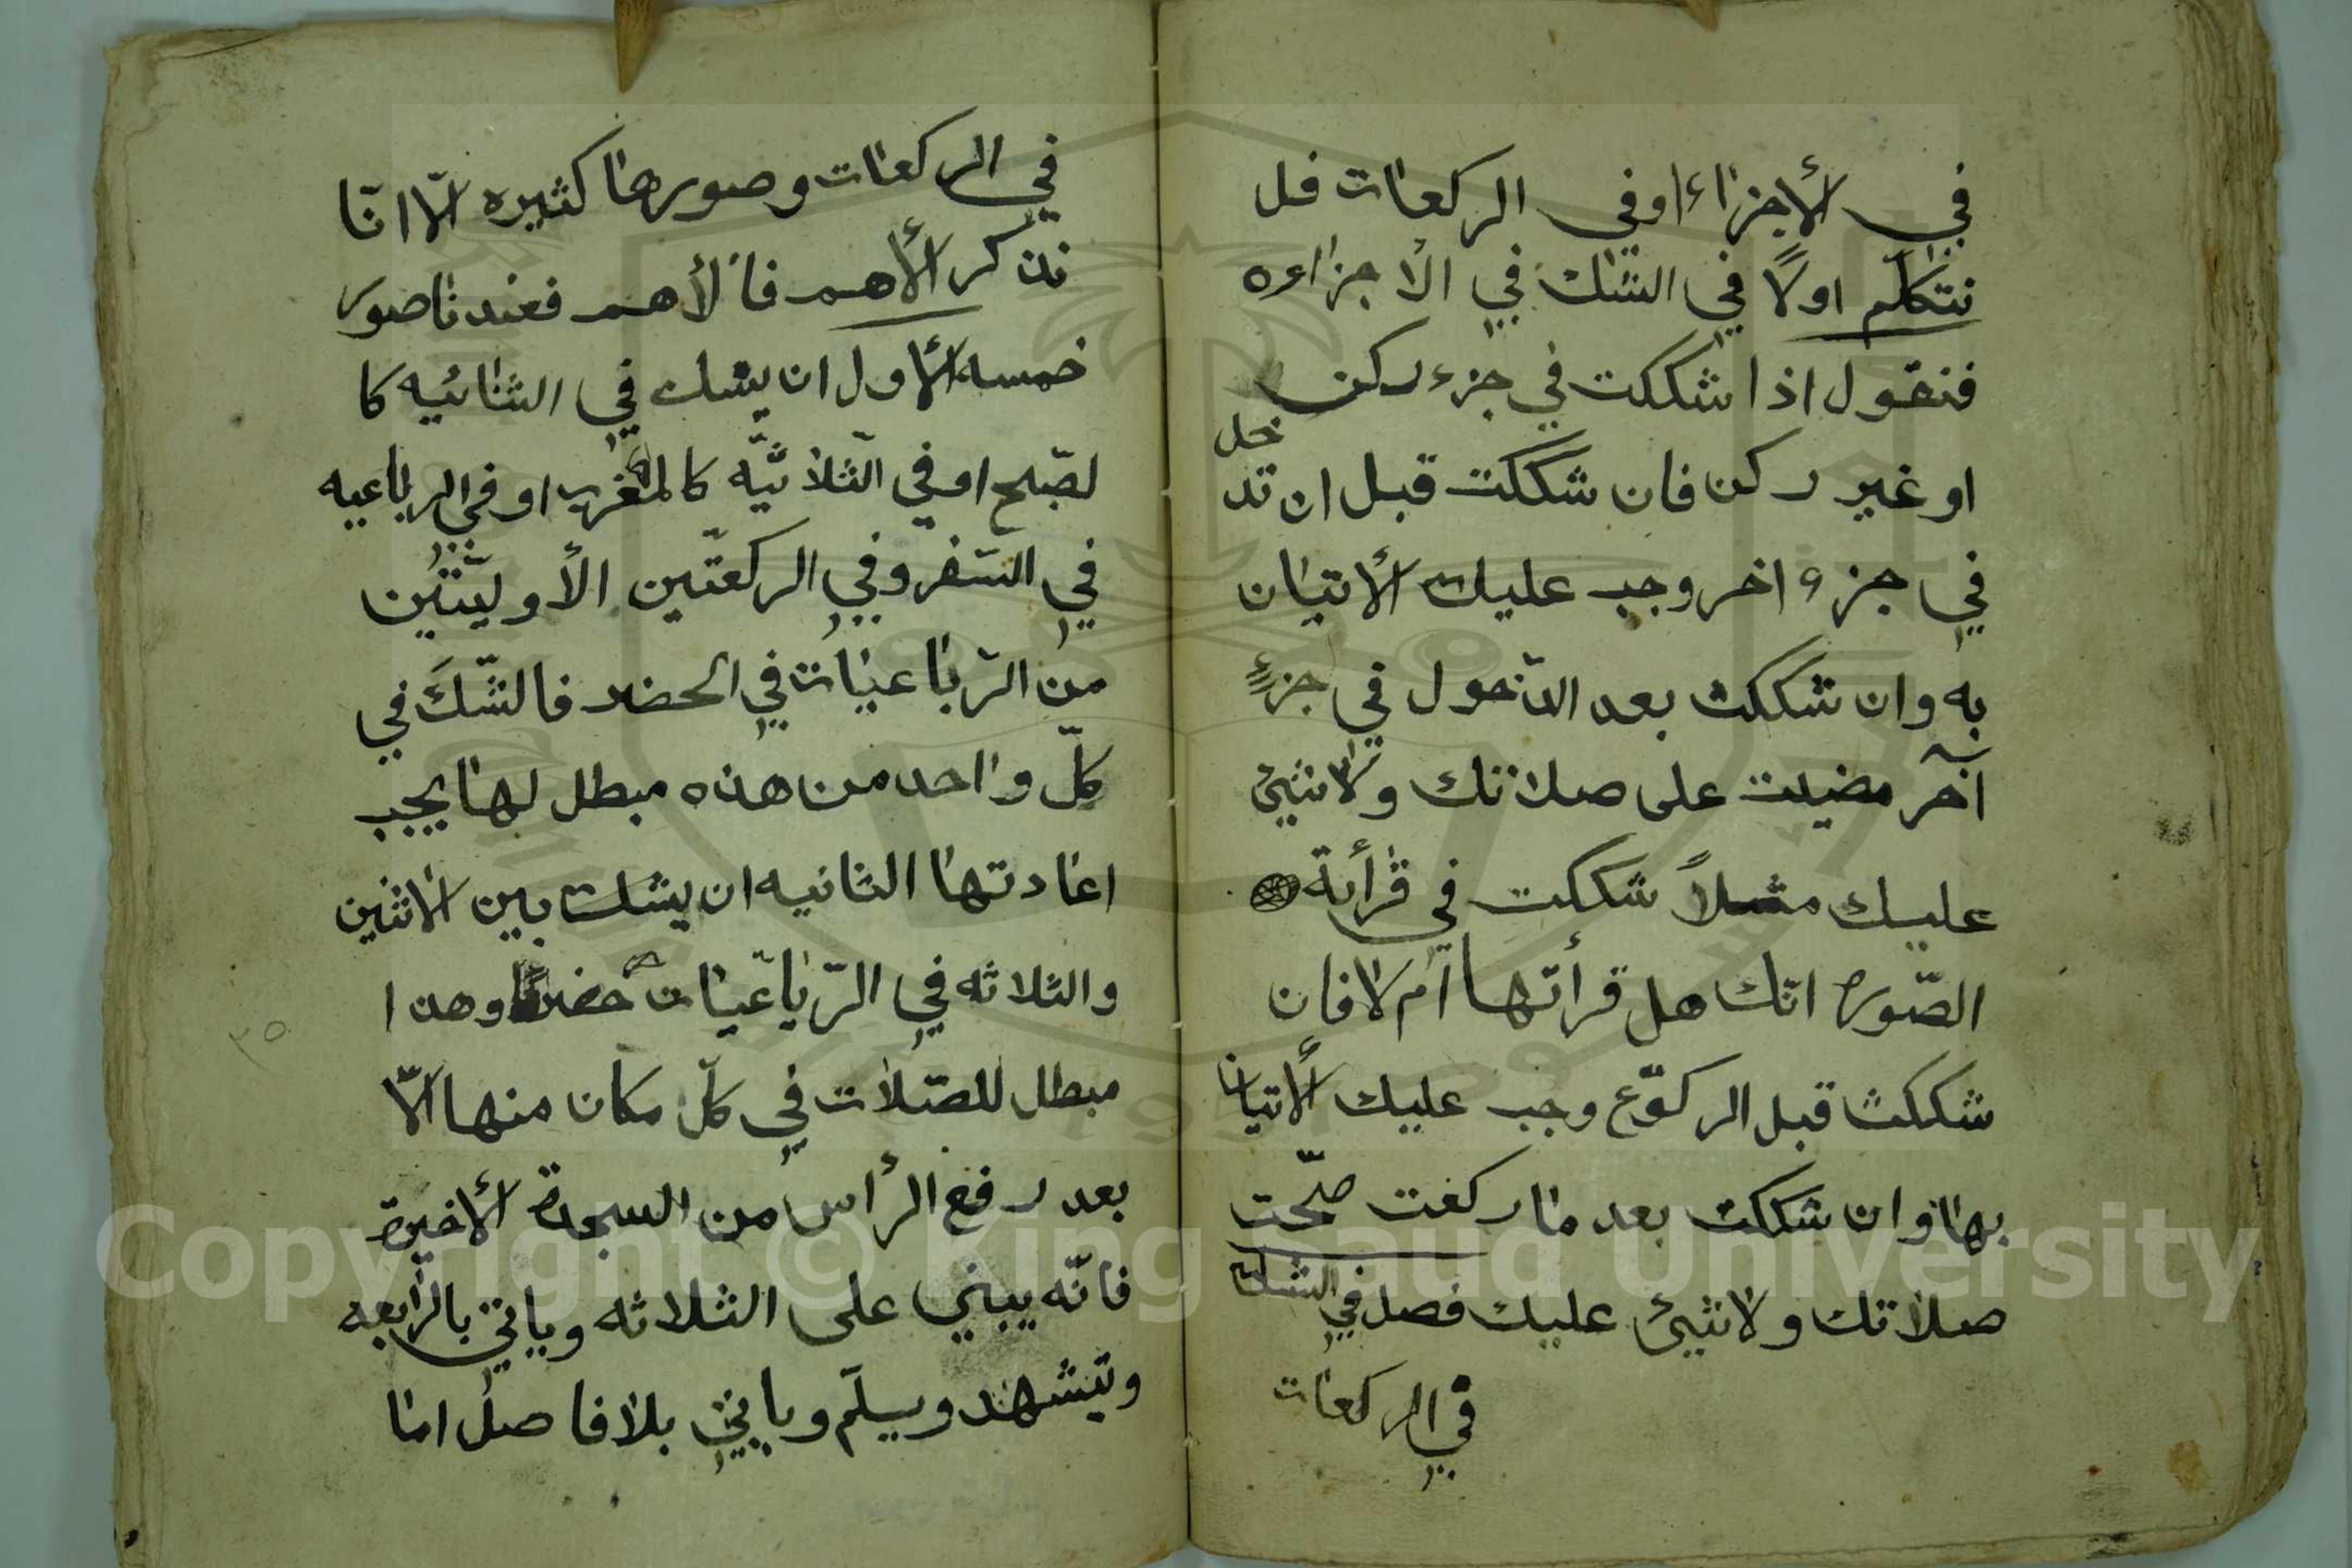 في الأجزاء او في الركعات فل
نتكلّم اولًا في الشك في الأجزاءه
فنقول اذا شككت في جزء ركن
او غير ركن فان شككت قبل ان تد
خل
في جزء اخر وجب عليك الأتيان
به وان شككت بعد الدّخول في جزءٍ
آخر مضيت على صلاتك ولا شئ
عليك مثلاً شككت في قرأية
الصّوره انّك هل قرأتها أم لا فان
شككت قبل الركوّع وجب عليك الأتيان
بها وان شككت بعد ما ركعت صحّت
صلاتك ولا شئ عليك فصل في الشك
في الركعات
في الركعات وصورها كثيره الّا انّا
نذكر الأهم فالأهم فعندنا صور
خمسه الأول ان يشك في الثنائيه كا
لصّبح او في الثّلاثيّه كالمغرب او في الرباعيه
في السّفر وفي الركعتّين الأوليّتين
من الرّباعيات في الحضر فالشّك في
كلّ واحد من هذه مبطل لها يجب
اعادتها الثانيه ان يشك بين الاثنين
والثلاثه في الرّباعيّات حضرًا وهذا
مبطل للصّلات في كلّ مكان منها الّا
بعد رفع الرأس من السجدة الأخيرة
فانّه يبني على الثلاثه وياتي بالرّابعه
وتيشهد ويسلّم وياتي بلا فاصل اما
٣٥
Copyright © King Saud University